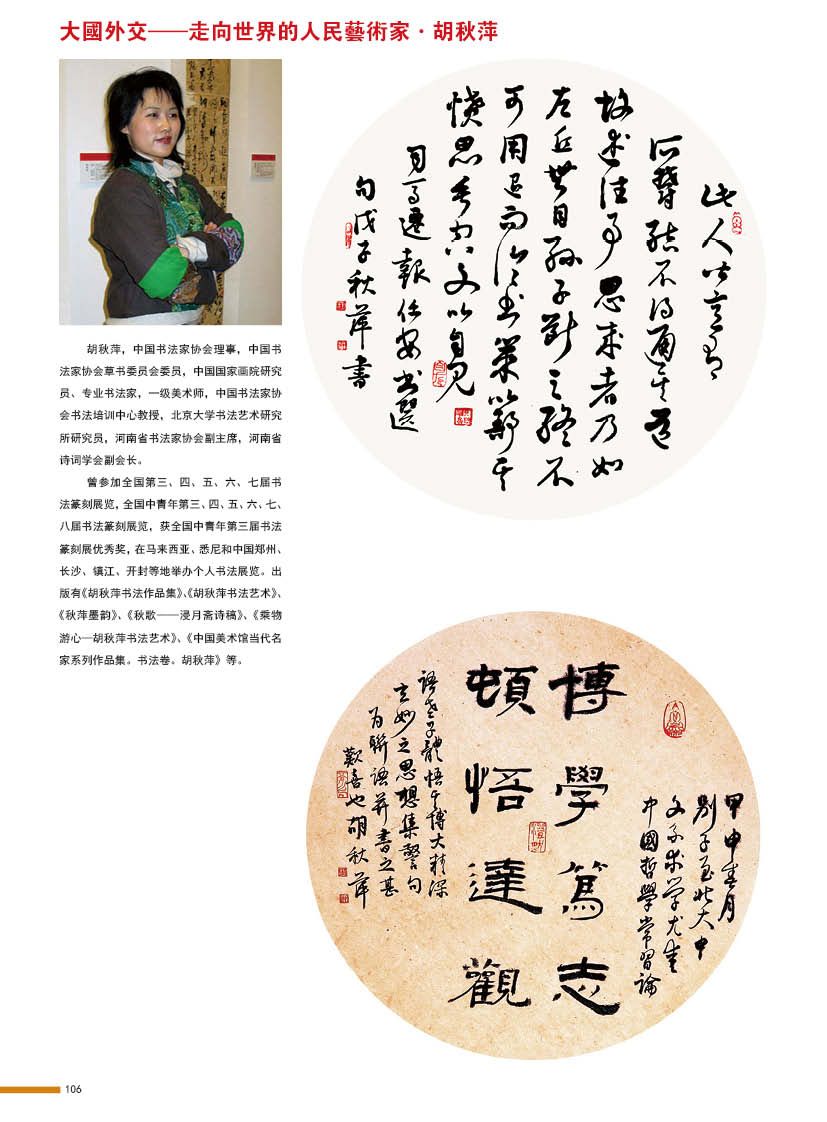 大國外交——走向世界的人民藝術家·胡秋萍
胡秋萍，中国书法家协会理事，中国书
法家协会草书委员会委员，中国国家画院研究
员、专业书法家，一级美术师，中国书法家协
会书法培训中心教授，北京大学书法艺术研究
所研究员，河南省书法家协会副主席，河南省
诗词学会副会长。
曾参加全国第三、四、五、六、七届书
法篆刻展览，全国中青年第三、四、五、六、七、
八届书法篆刻展览，获全国中青年第三届书法
篆刻展优秀奖，在马来西亚、悉尼和中国郑州、
长沙、镇江、开封等地举办个人书法展览。出
版有《胡秋萍书法作品集》、《胡秋萍书法艺术》、
《秋萍墨韵》、《秋歌——浸月斋诗稿》、《乘物
游心—胡秋萍书法艺术》、《中国美术馆当代名
家系列作品集。书法卷。胡秋萍》等。
此人皆意有
所鬱結不得通其道
故述往事思來者乃如
左丘無目孫子斷足終不
可用退而論書策以舒其
憤思垂空文以自見
司馬遷報任安書選
句戊子秋萍書
甲申春月
別子至北大中
文系求學尤喜
中國哲學常習論
博學篤志
頓悟達觀
語老子體悟其博大精深
玄妙之思想集警句
為聯語并書之甚
歡喜也胡秋萍
106